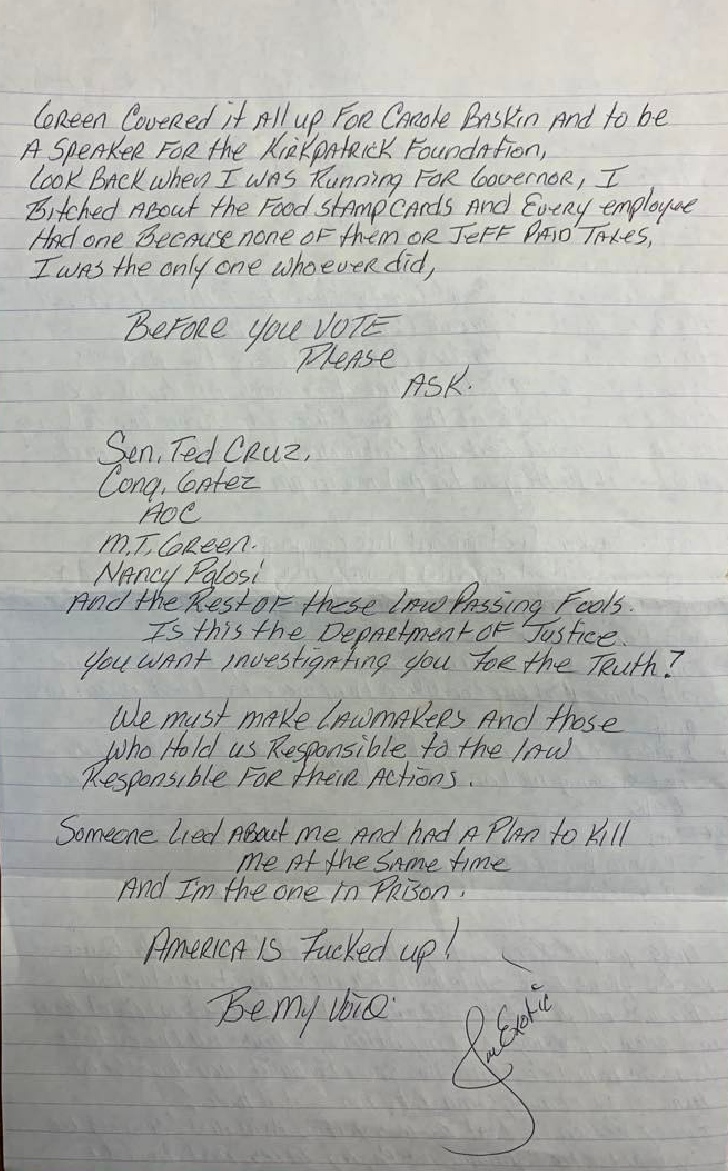 Green Covered it All up For Carole Baskin And to be
A Speaker For the Kirkpatrick Foundation,
Look Back when I was Running For Governor, I
Bitched About the Food Stamp Cards And Every employee
Had one Because none of them or Jeff Paid Taxes,
I was the only one whoever did,
Before you VOTE
Please
ASK.
Sen. Ted Cruz,
Cong. Gatez
AOC
M.T. Green.
Nancy Palosi
And the Rest of these Law Passing Fools.
Is this the Department of Justice.
You want investigating you For the Truth?
We must make Lawmakers And those
who Hold us Responsible to the law
Responsible For their Actions.
Someone Lied About me And had A Plan to Kill
me At the Same time
And I'm the one in Prison.
America is Fucked up!
Be My Voice
Joe Exotic